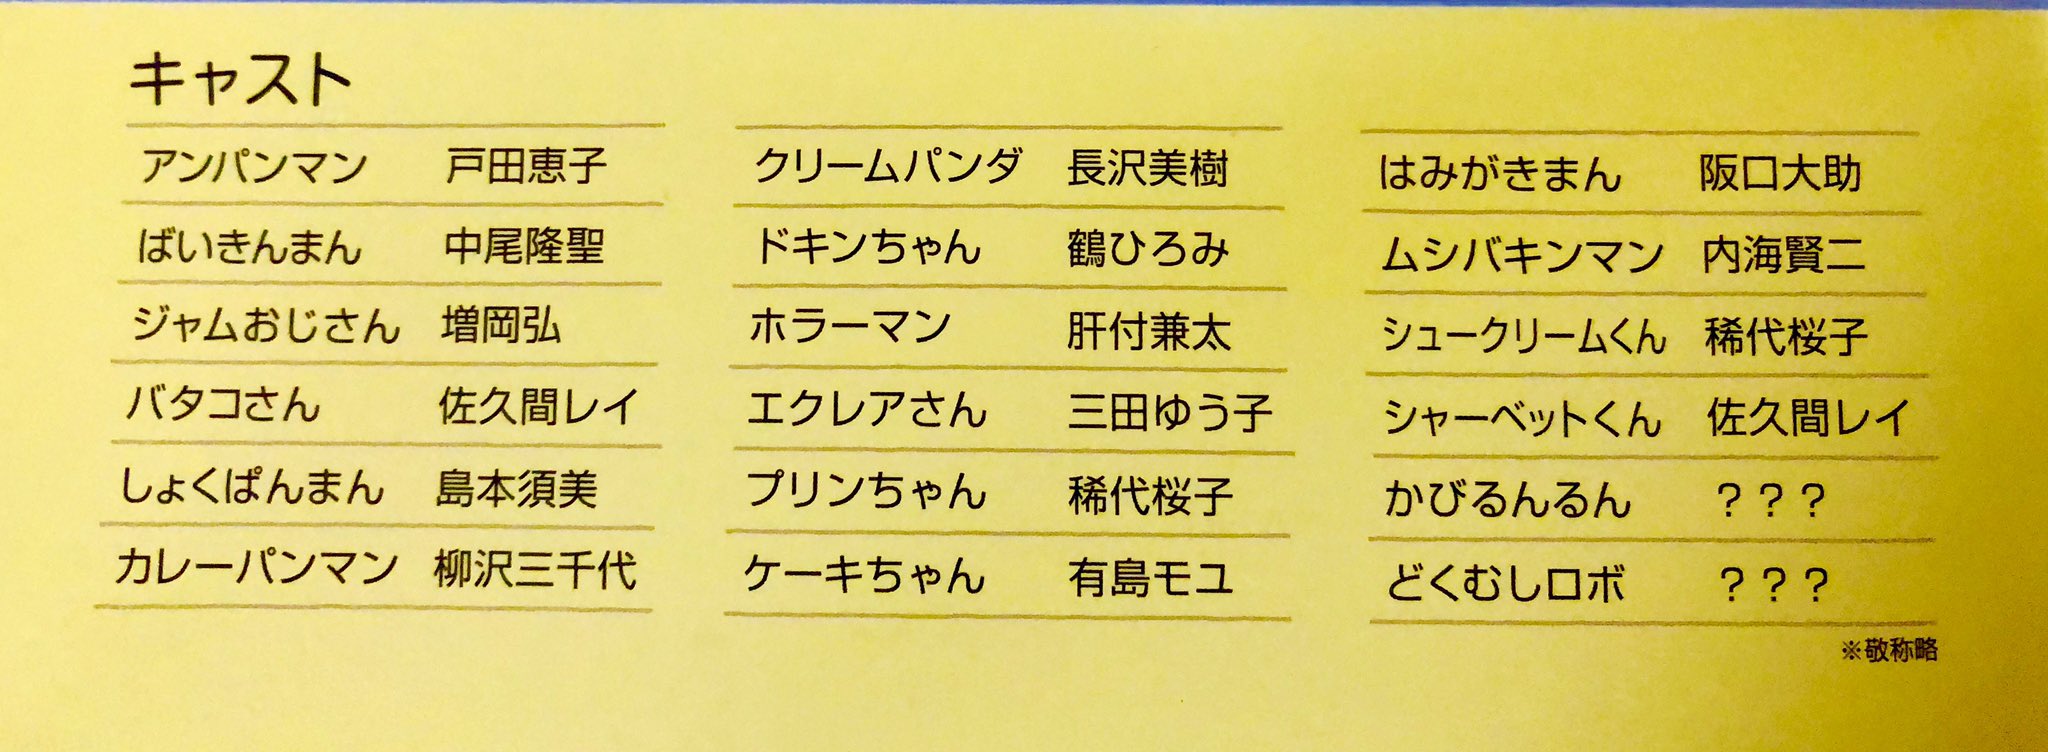 キャスト
アンパンマン 戸田恵子
ばいきんまん 中尾隆聖
ジャムおじさん 増岡弘
バタコさん 佐久間レイ
しょくぱんまん 島本須美
カレーパンマン 柳沢三千代
クリームパンダ 長沢美樹
ドキンちゃん 鶴ひろみ
ホラーマン 肝付兼太
エクレアさん 三田ゆう子
プリンちゃん 稀代桜子
ケーキちゃん 有島モユ
はみがきまん 阪口大助
ムシバキンマン 内海賢二
シュークリームくん 稀代桜子
シャーベットくん 佐久間レイ
かびるんるん ？？？
どくむしロボ ？？？
※敬称略